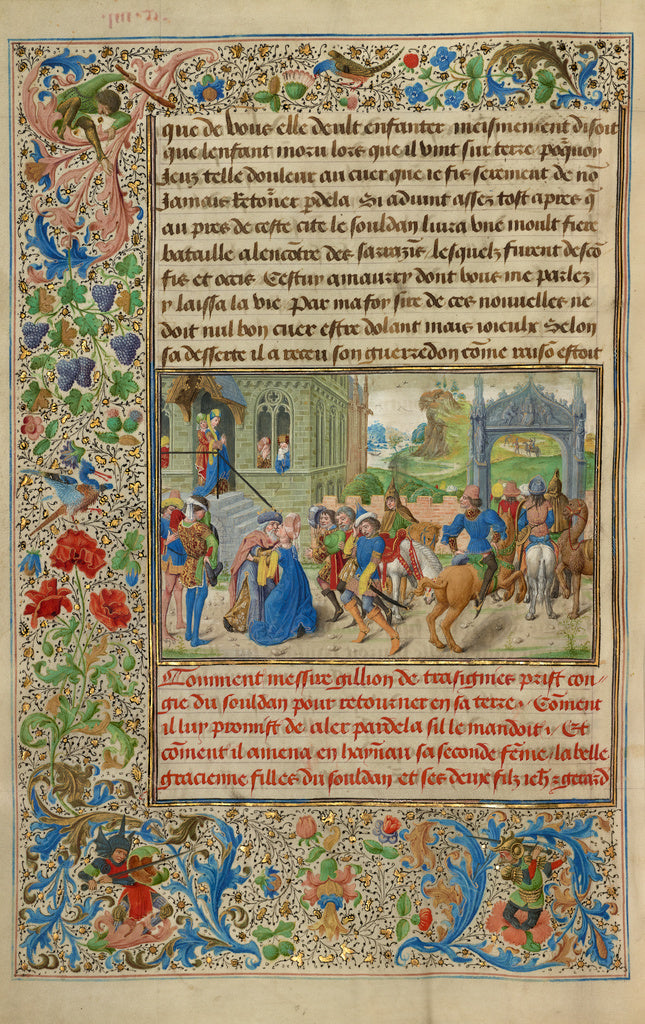 que de vous elle deult enfanter meismement disoit
que lenfant moru lors que il vint sur terre parquoy
Jeuz telle douleur au cuer que je fis serement de nō
Jamais retor̄ner p̄dela Si advint assez tost apres q̄
au pres de ceste cite le souldan livra une moult fiere
bataille alencōtre des sarrazīs lesquelz furent descō
fis et occis Cestuy amaury dont vous me parlez
y laissa la vie Par ma foy sire de ces nouvelles ne
doit nul bon cuer estre dolant mais joieulx Selon
sa desserte il a receu son guerredon cōme raisō estoit
Comment messire gillion de trasignies prist con
gie du souldan pour retourner en sa terre. Cōment
il luy promist de aler pardela sil le mandoit, Et
cōment il amena en haynau sa seconde fēme, la belle
gracienne filles du souldan et ses deux filz jeh̄ z gerard